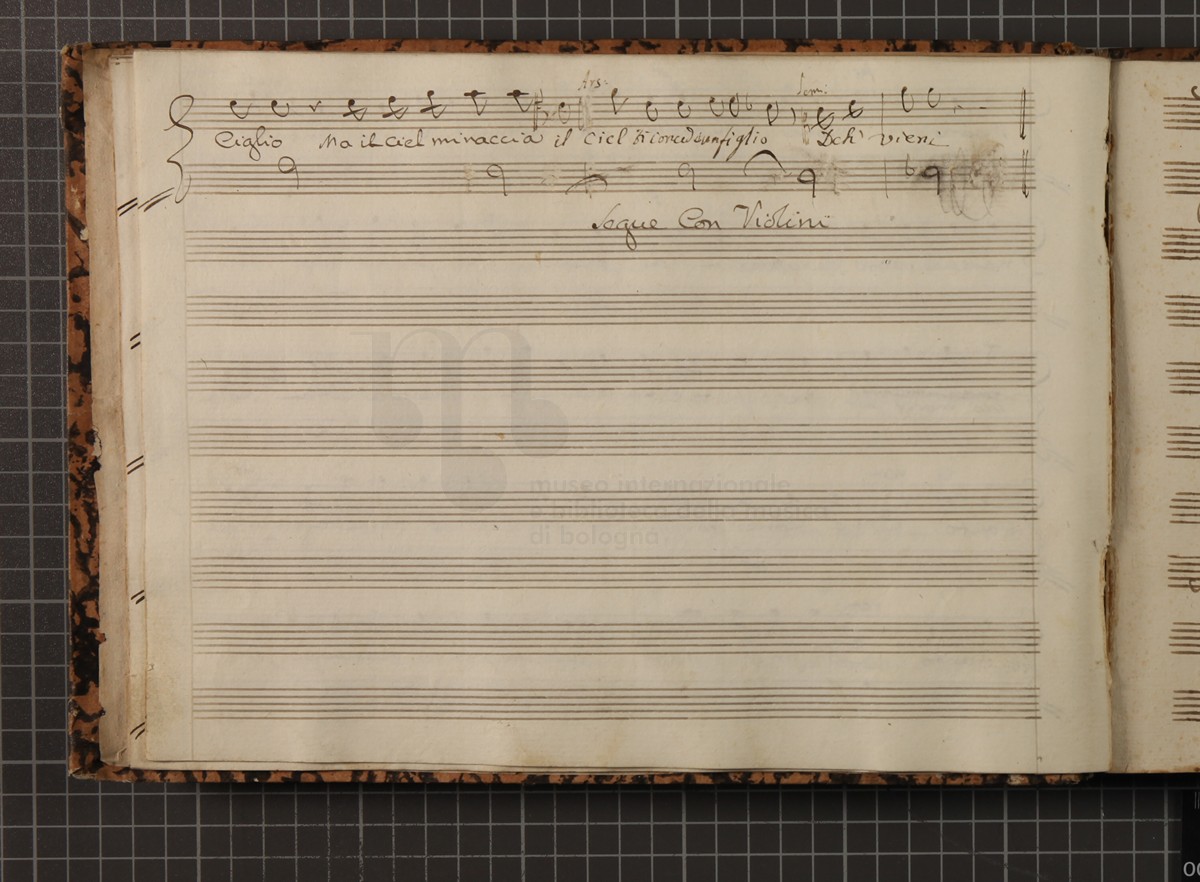 Ars:
Sem:
Ciglio Ma il Ciel minaccia il Ciel ti concede un figlio Deh' vieni
Segue Con Violini
museo internazionale
e biblioteca della musica
di bologna